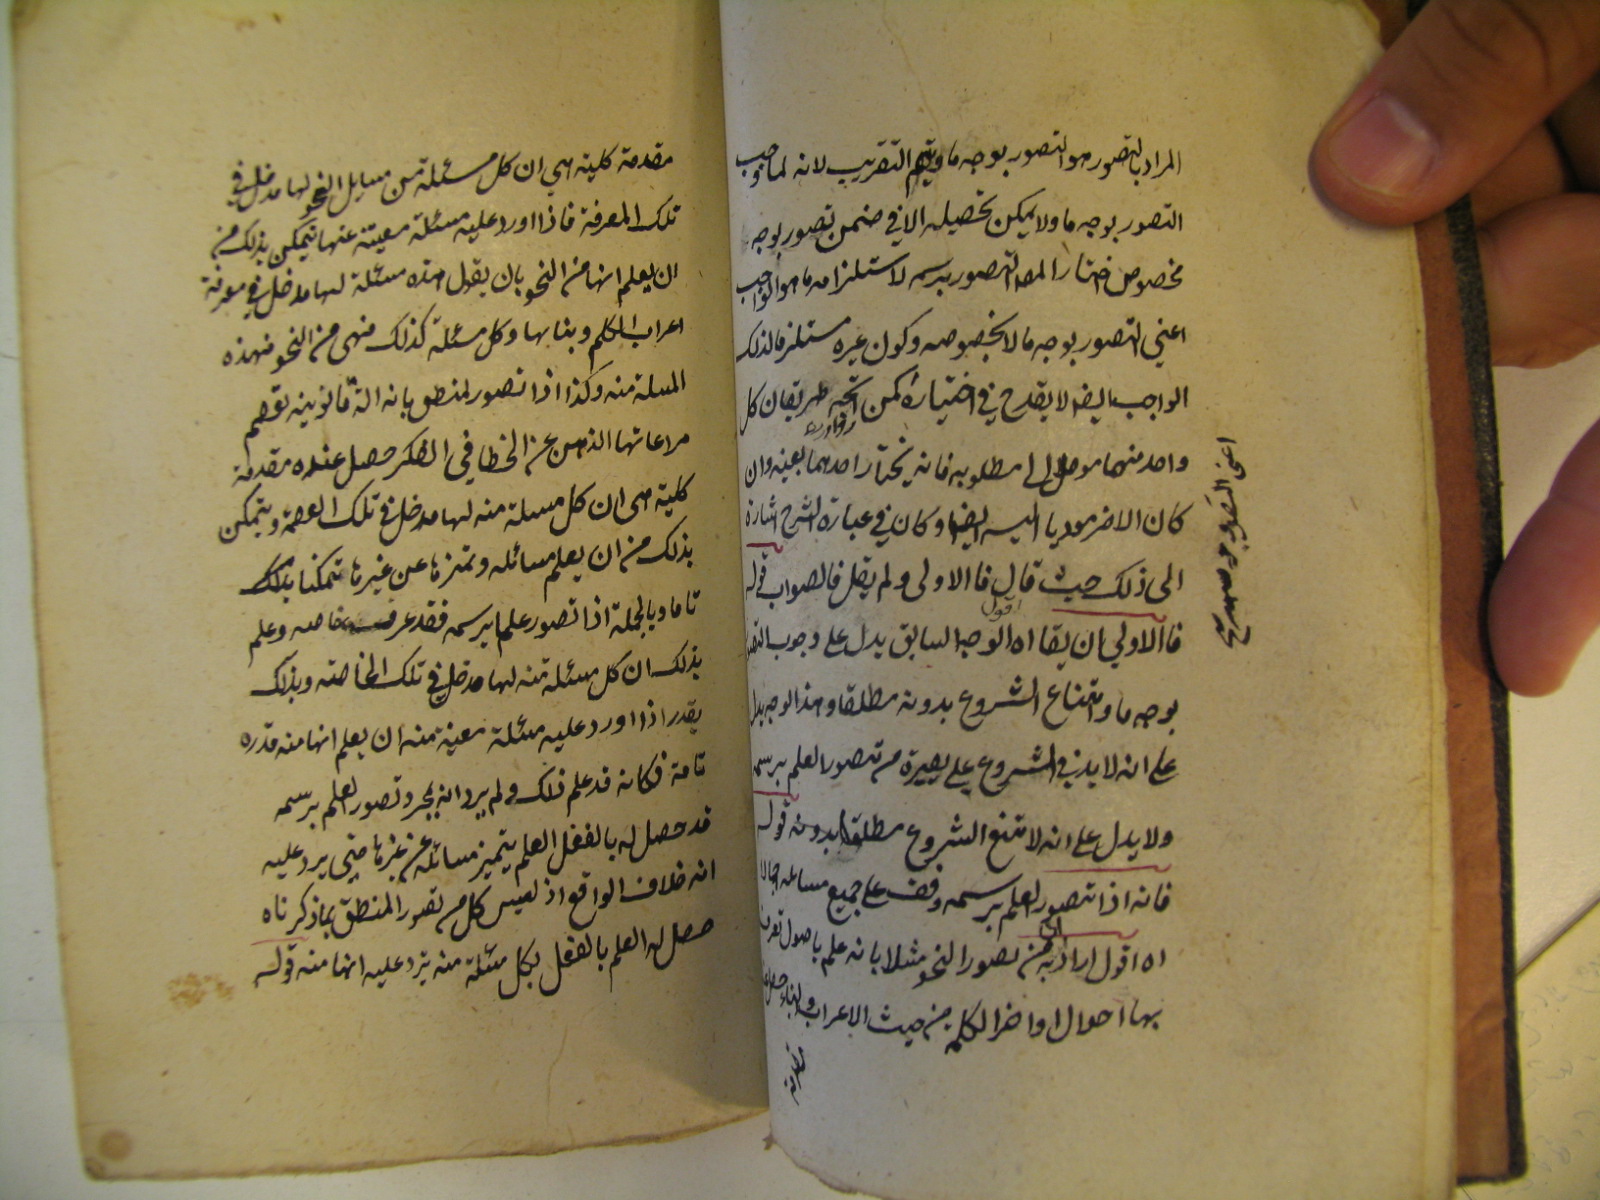 المراد بالتصور هو التصور بوجه ما ويتم التقريب لانه لما وجب
التصور بوجه ما ولا يمكن تحصيله الا في ضمن تصور بوجه
مخصوص اختار المص التصور برسمه لاستلزامه ما هو الواجب
اعني التصور بوجه ما لا بخصوصه وكون غيره مستلزما لذلك
الواجب ايضا لا يقدح في اختياره كمن اتجه طريقان كل
واحد منهما موصل الى مطلوبه فانه يختار احدهما بعينه وان
كان الاخر موديا اليه ايضا وكان في عبارة الشرح اشارة
الى ذلك حيث قال فالاولى ولم يقل فالصواب قوله
فالاولى ان يقا اه اقول الوجه السابق يدل على وجوب التصور
بوجه ما وامتناع الشروع بدونه مطلقا وهذا الوجه يدل
على انه لا بد في الشروع على بصيرة من تصور العلم برسمه
ولا يدل على انه لا متنع الشروع مطلقا بدونه قوله
فانه اذا تصور العلم برسمه وقف على جميع مسائله اجمالا
اه اقول اراد به ان من تصور النحو مثلا بانه علم باصول تعرف
بها احوال اواخر الكلم من حيث الاعراب والبناء حصل عنده
اعني التصور بوجه
مقدمة
مقدمة كلية هي ان كل مسئلة من مسايل النحو لها مدخل في
تلك المعرفة فاذا اورد عليه مسئلة معينة عنها يتمكن بذلك من
ان يعلم انها من النحو بان يقول هذه مسئلة لها مدخل في معرفة
اعراب الكلم وبنايها وكل مسئلة كذلك فهي من النحو فهذه
المسلة منه وكذا اذا تصور المنطق بانه الة قانونية تعصم
مراعاتها الذهن عن الخطا في الفكر حصل عنده مقدمة
كلية هي ان كل مسلة منه لها مدخل في تلك العصمة ويتمكن
بذلك من ان يعلم مسائله وتميزها عن غيرها تمكنا بذلك
تاما وبالجملة اذا تصور علما برسمه فقد عرف خاصه وعلم
بذلك ان كل مسئلة منه لها مدخل في تلك الخاصة وبذلك
يقدر اذا اورد عليه مسئلة معينة منه ان يعلم انها منه قدرة
تامة فكانه قد علم ذلك ولم يرد انه بمجرد تصور العلم برسمه
قد حصل له بالفعل العلم بتميز مسائله عن غيرها حتى يرد عليه
انه خلاف الواقع اذ ليس كل من تصور المنطق بما ذكرناه
حصل له العلم بالفعل بكل مسئلة منه يرد عليه انها منه قوله